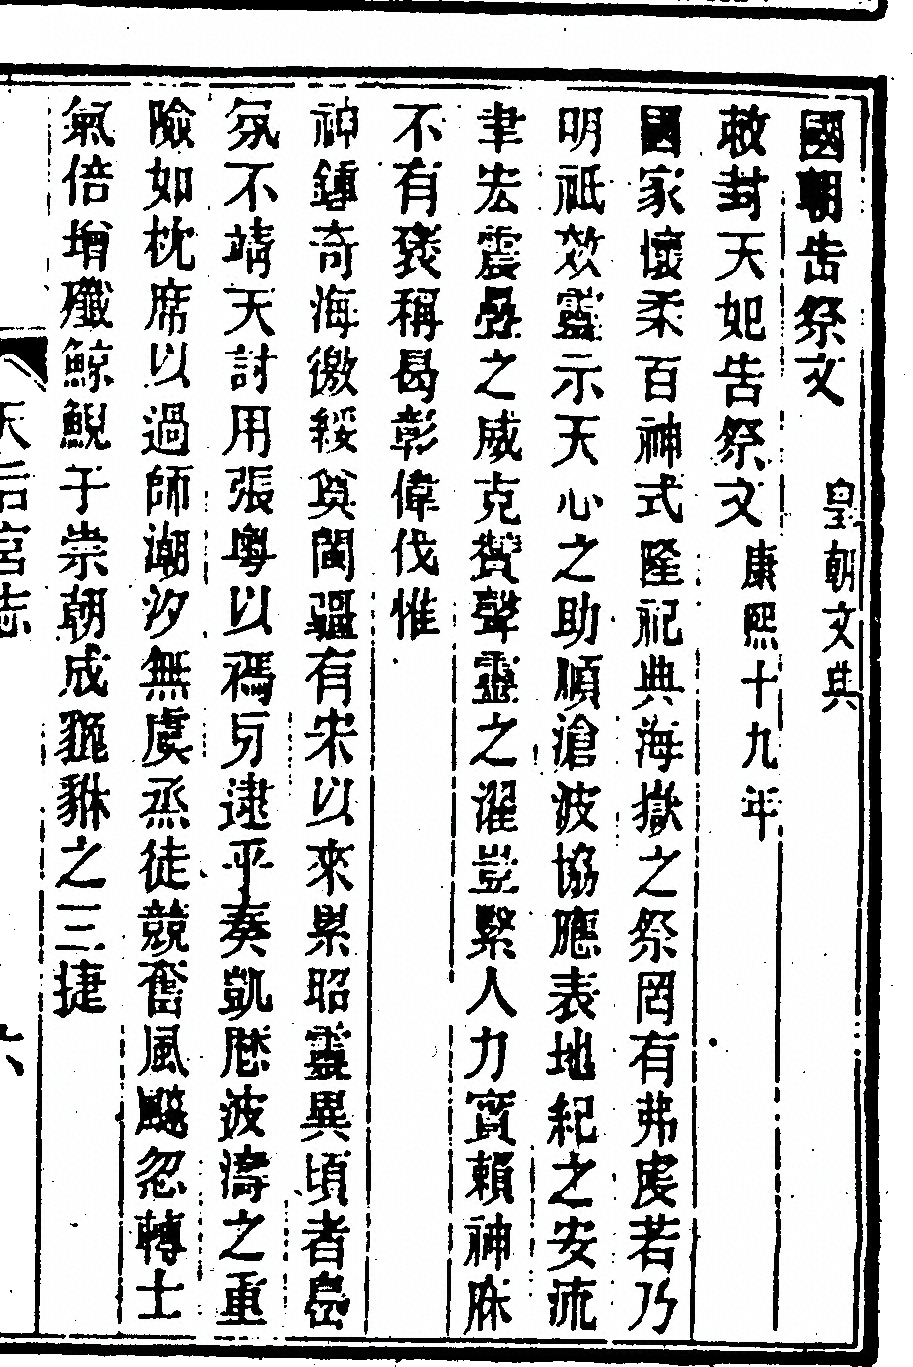 國朝告祭文 皇朝文典
敕封天妃告祭文 康熙十九年
國家懷柔百神式隆祀典海嶽之祭罔有弗虔若乃
明祇效靈示天心之助順滄波協應表地紀之安流
聿宏震疊之威克贊聲靈之濯豈繄人力實賴神庥
不有褒稱曷彰偉伐惟
神鍾奇海徼綏奠閩疆有宋以來累昭靈異頃者島
氛不靖天討用張粵以禡牙逮乎奏凱厯波濤之重
險如枕席以過師潮汐無虞烝徒競奮風飈忽轉士
氣倍增殲鯨鯢于崇朝成貔貅之三捷
天后宮志 六